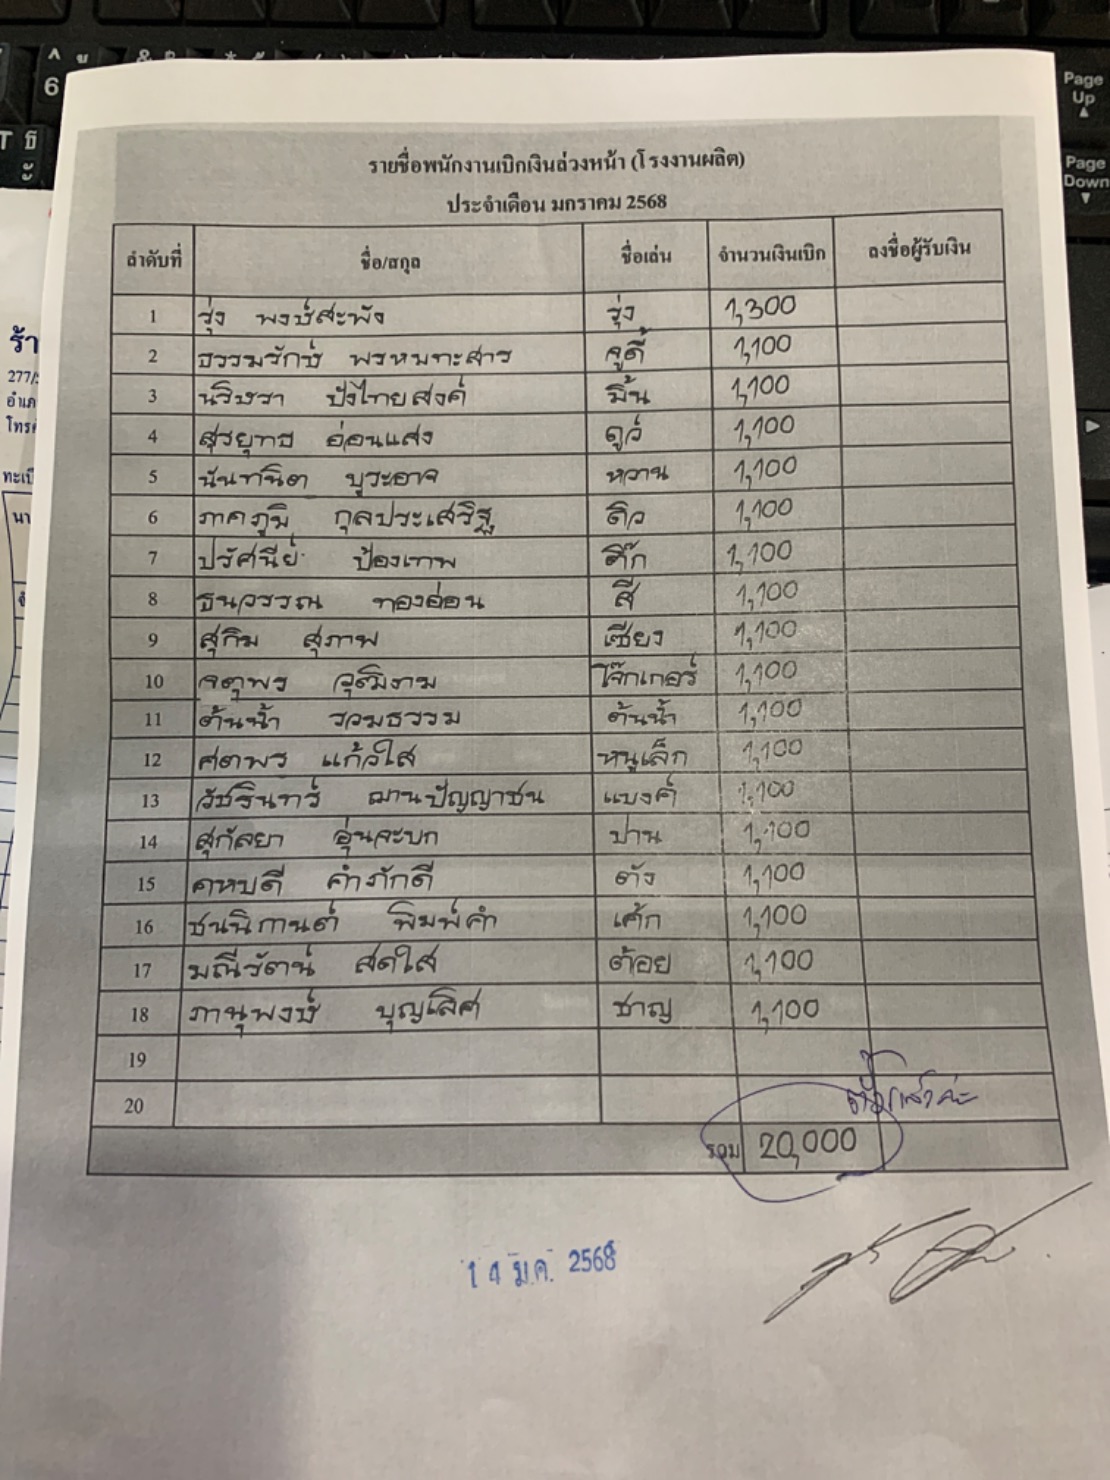 ^ ข & * 
6
T ธ
ะ
Page Up
Page Down
ร้า
277/
อำเภ
โทรศ
ทะเบี
นา
รายชื่อพนักงานเบิกเงินล่วงหน้า (โรงงานผลิต)
ประจำเดือน มกราคม 2568
ลำดับที่ ชื่อ/สกุล ชื่อเล่น จำนวนเงินเบิก ลงชื่อผู้รับเงิน
1 รุ่ง พงษ์สะพัง รุ่ง 1,300
2 ธรรมรักษ์ พรหมทะสาร จูดี้ 1,100
3 นริศรา ปังไทยสงค์ มิ้น 1,100
4 สุรยุทธ อ่อนแสง ดูว์ 1,100
5 นันทนิต บูระอาจ หวาน 1,100
6 ภาคภูมิ กุลประเสริฐ ดิว 1,100
7 ปรัศนีย์ ป้องเทพ ติ๊ก 1,100
8 ธนวรรณ ทองอ่อน สี 1,100
9 สุกิม สุภาพ เซียง 1,100
10 จตุพร วุฒิงาม โจ๊กเกอร์ 1,100
11 ต้นน้ำ รวมธรรม ต้นน้ำ 1,100
12 ศตพร แก้วใส หนูเล็ก 1,100
13 วัชรินทร์ ฌานปัญญาชน แบงค์ 1,100
14 สุกัลยา อุ่นจะบก ปาน 1,100
15 คหบดี คำภักดี ตัง 1,100
16 ชนนิกานต์ พิมพ์คำ เค้ก 1,100
17 มณีรัตน์ สดใส ต้อย 1,100
18 ภานุพงษ์ บุญเลิศ ชาญ 1,100
19
20
รวม 20,000
14 ม.ค. 2568